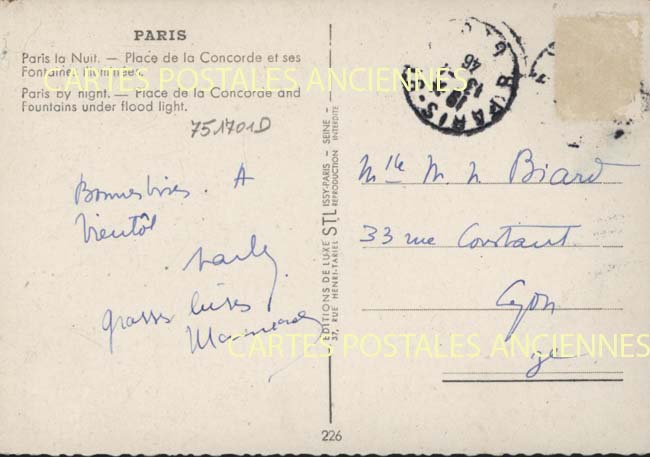 PARIS
Paris la Nuit. — Place de la Concorde et ses
Fontaines illuminées.
Paris by night. — Place de la Concorde and
Fountains under flood light.
751701D
Bonnes bises. A
bientôt
grosses bises
EDITIONS DE LUXE STL ISSY-PARIS - SEINE -
37, RUE HENRI-TARIEL REPRODUCTION INTERDITE
PARIS
13
46
Mlle M. N Biard
33 rue Constant
Lyon
3e
226
CARTES POSTALES ANCIENNES
CARTES POSTALES ANCIENNES